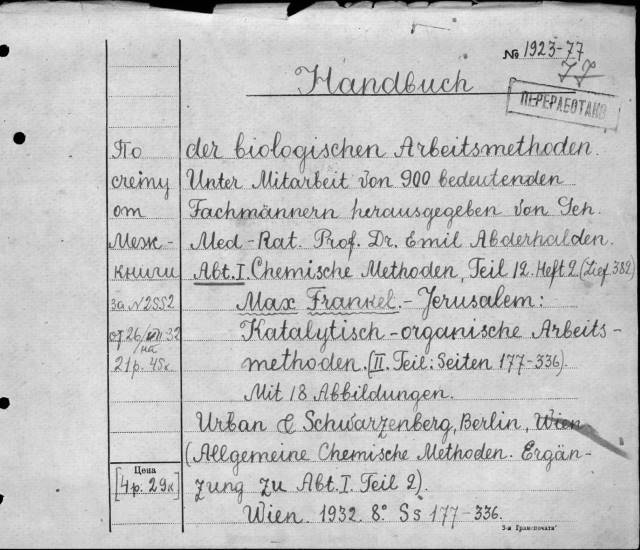 № 1923-77
77
Handbuch
ПЕРЕРАБОТАНО
der biologischen Arbeitsmethoden.
Unter Mitarbeit von 900 bedeutenden
Fachmännern herausgegeben von Geh.
Med-Rat. Prof. Dr. Emil Abderhalden.
Abt.I. Chemische Methoden, Teil 12. Heft 2 (Lief 382)
Max Frankel.-Jerusalem:
Katalytisch-organische Arbeits-
methoden. (II. Teil: Seiten 177-336).
Mit 18 Abbildungen.
Urban & Schwarzenberg, Berlin, Wien
(Allgemeine Chemische Methoden. Ergän-
zung zu Abt. I. Teil 2).
Wien. 1932. 8° Ss 177-336.
По
счету
от
Меж-
книги
за N 2552
от 26/ 32
на
21р. 45к
Цена
[4р. 29к]
3-я Транспечати